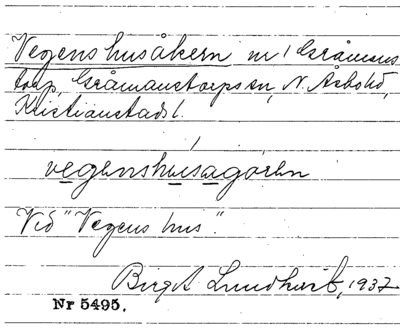 Vegenshusåkern nr 1 Gråmans
torp, Gråmanstorps sn, N. Åsbo hd,
Kristianstads l.
vegenshusagören
Vid "Vegens hus".
Birgit Lundkvist, 1937
Nr 5495.